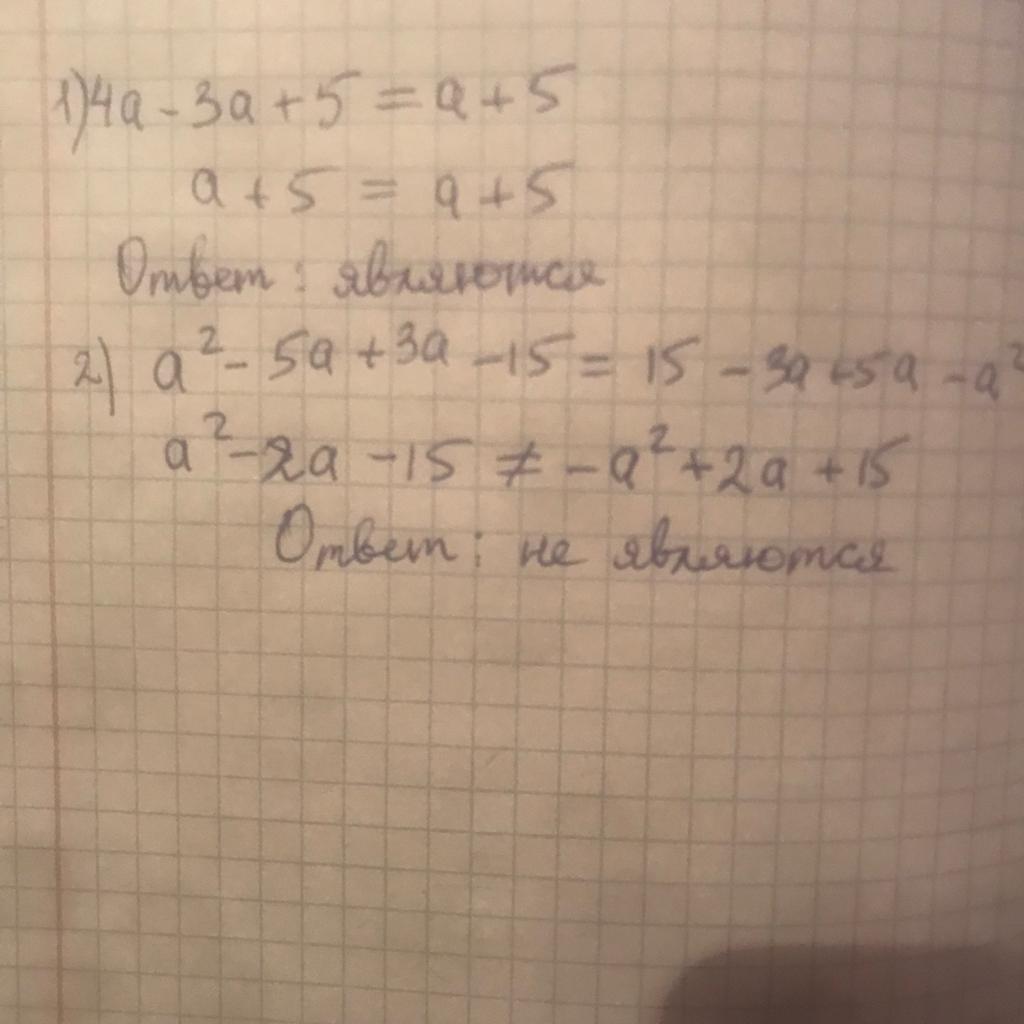 1) 4a - 3a + 5 = a + 5
a + 5 = a + 5
Ответ: являются
2) a² - 5a + 3a - 15 = 15 - 3a + 5a - a²
a² - 2a - 15 ≠ - a² + 2a + 15
Ответ: не являются